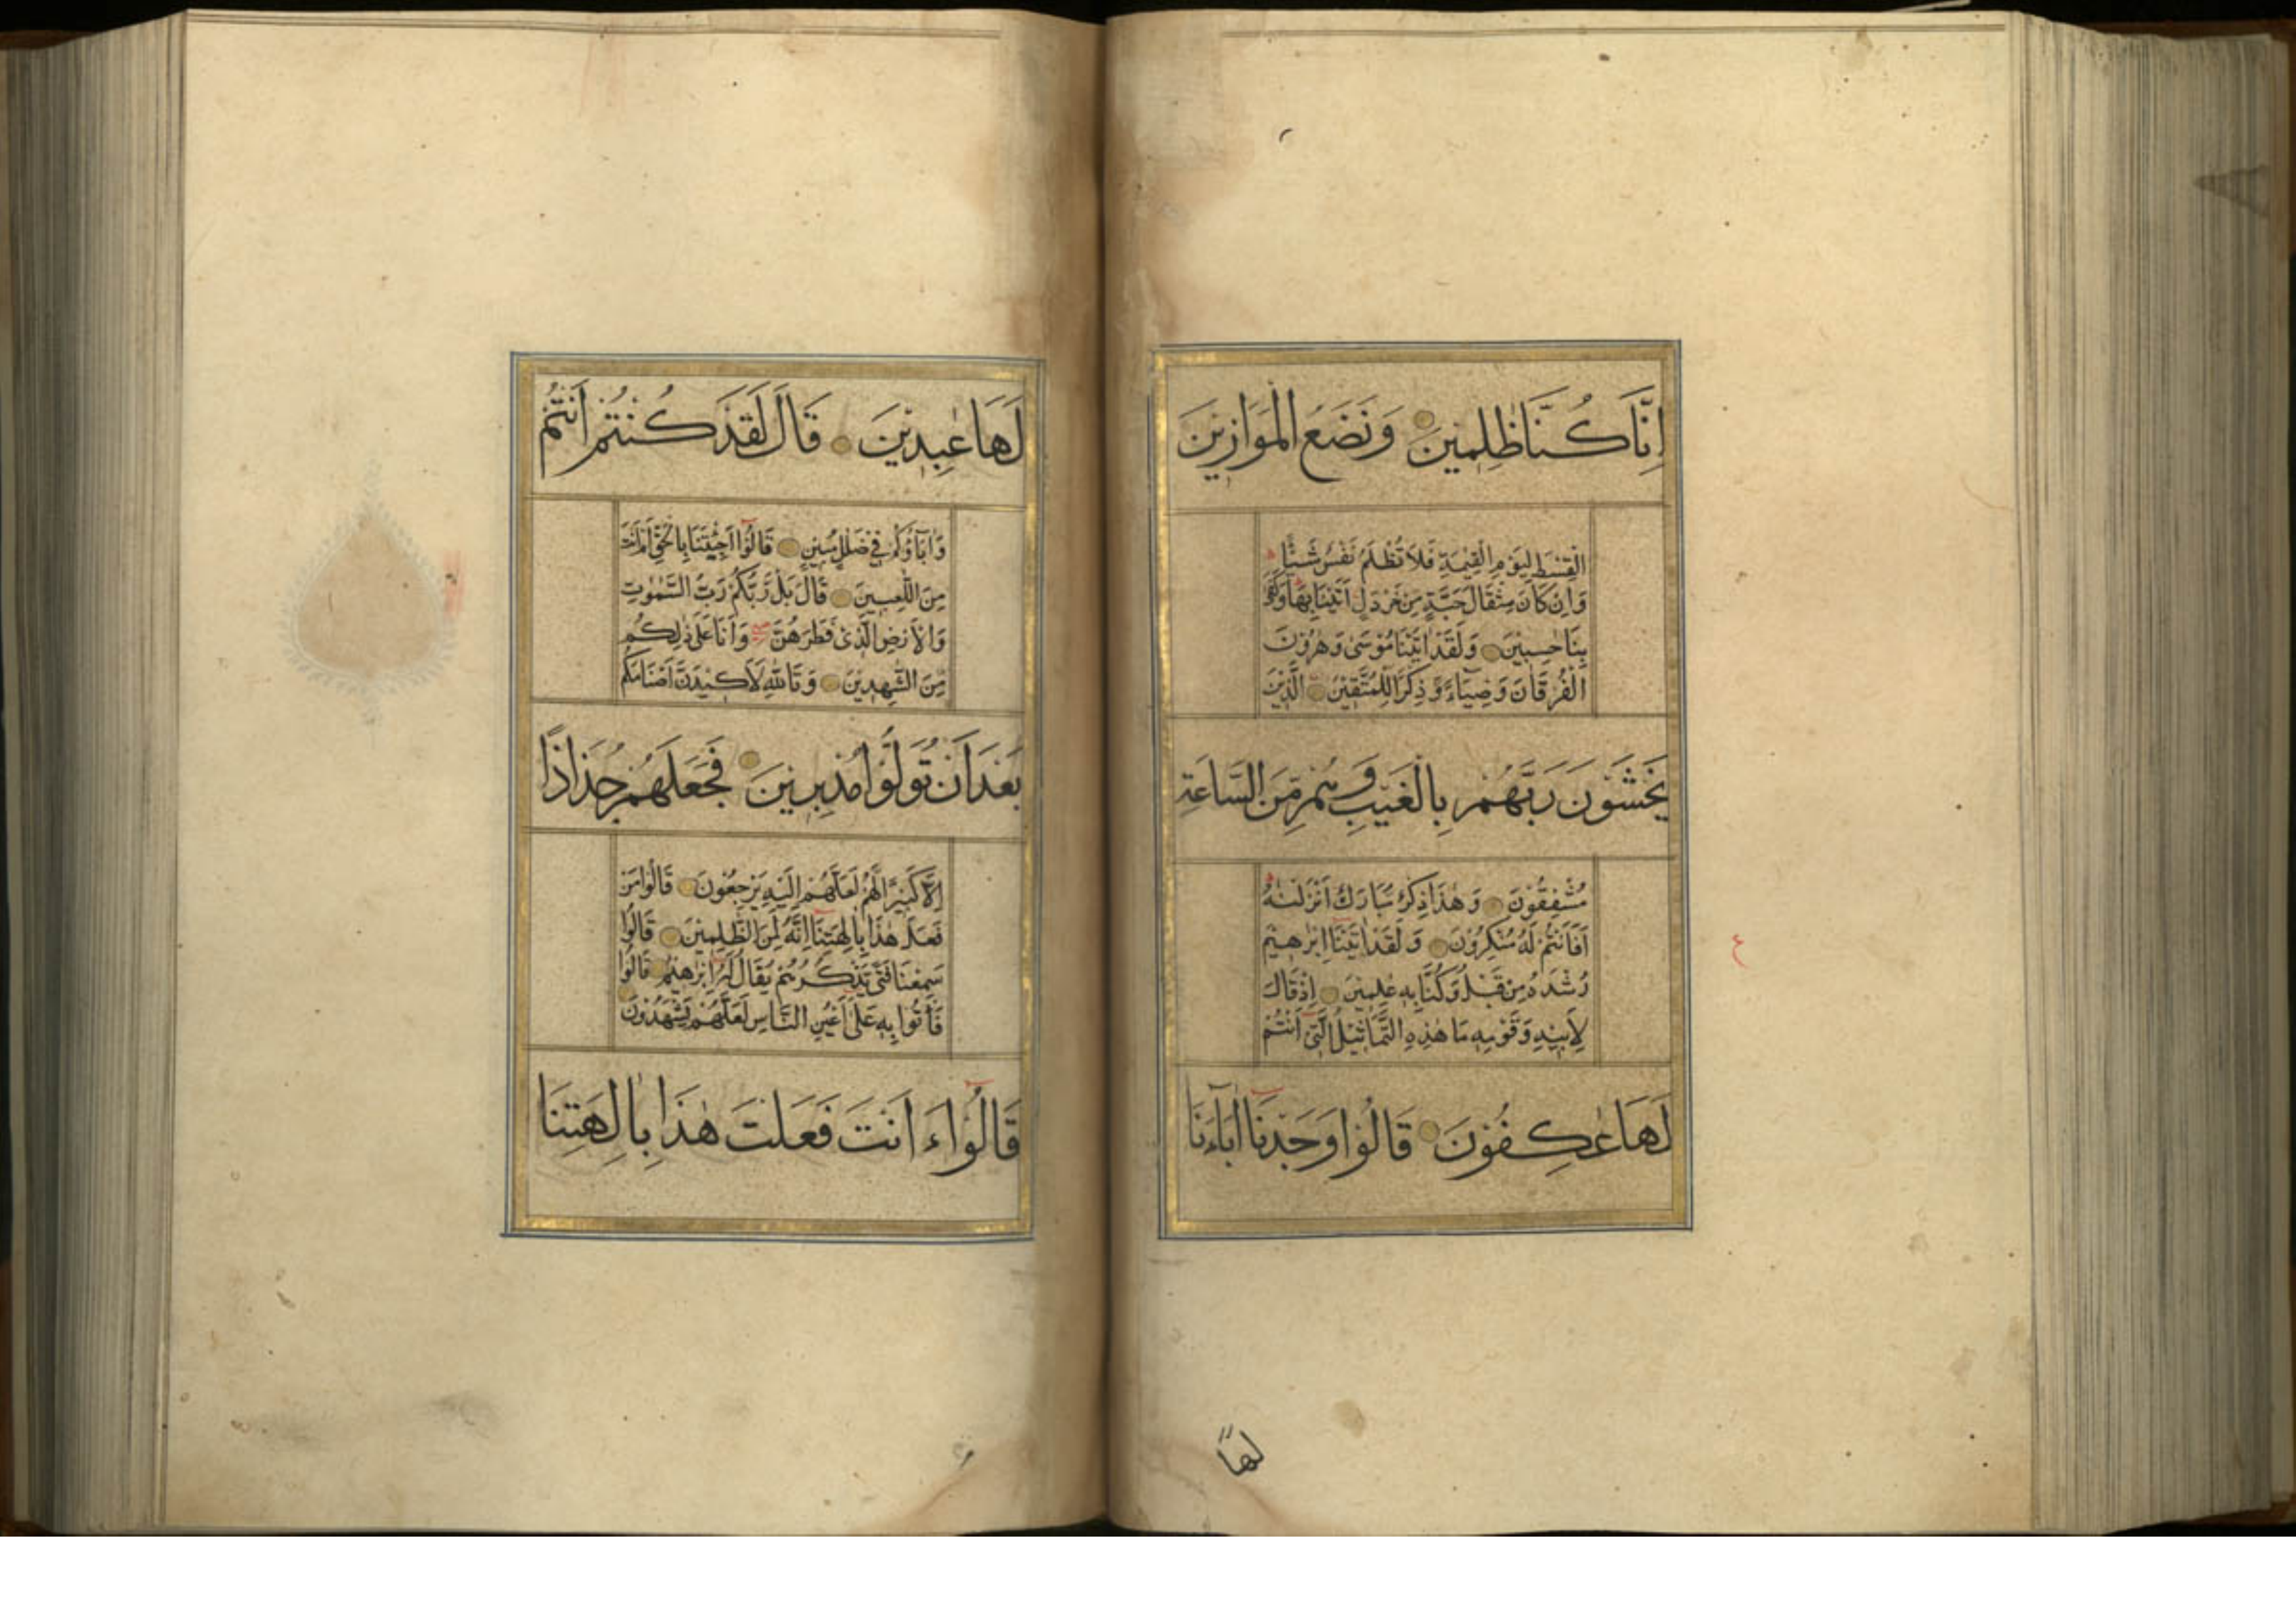 اِنَّا كُنَّا ظٰلِمِيْنَ وَنَضَعُ الْمَوَازِيْنَ
الْقِسْطَ لِيَوْمِ الْقِيٰمَةِ فَلَا تُظْلَمُ نَفْسٌ شَيْئًا
وَاِنْ كَانَ مِثْقَالَ حَبَّةٍ مِنْ خَرْدَلٍ اَتَيْنَا بِهَا وَكَفٰى
بِنَا حٰسِبِيْنَ وَلَقَدْ اٰتَيْنَا مُوْسٰى وَهٰرُوْنَ
الْفُرْقَانَ وَضِيَآءً وَّذِكْرًا لِلْمُتَّقِيْنَ الَّذِيْنَ
يَخْشَوْنَ رَبَّهُمْ بِالْغَيْبِ وَهُمْ مِّنَ السَّاعَةِ
مُشْفِقُوْنَ وَهٰذَا ذِكْرٌ مُبَارَكٌ اَنْزَلْنٰهُ
اَفَاَنْتُمْ لَهُ مُنْكِرُوْنَ وَلَقَدْ اٰتَيْنَا اِبْرٰهِيْمَ
رُشْدَهُ مِنْ قَبْلُ وَكُنَّا بِهٖ عٰلِمِيْنَ اِذْ قَالَ
لِاَبِيْهِ وَقَوْمِهٖ مَا هٰذِهِ التَّمَاثِيْلُ الَّتِيْ اَنْتُمْ
لَهَا عٰكِفُوْنَ قَالُوْا وَجَدْنَا اٰبَآءَنَا
ع
لها
لَهَا عٰبِدِيْنَ قَالَ لَقَدْ كُنْتُمْ اَنْتُمْ
وَاٰبَآؤُكُمْ فِيْ ضَلٰلٍ مُبِيْنٍ قَالُوْا اَجِئْتَنَا بِالْحَقِّ اَمْ اَنْتَ
مِنَ اللّٰعِبِيْنَ قَالَ بَلْ رَّبُّكُمْ رَبُّ السَّمٰوٰتِ
وَالْاَرْضِ الَّذِيْ فَطَرَهُنَّ وَاَنَا عَلٰى ذٰلِكُمْ
مِنَ الشّٰهِدِيْنَ وَتَاللّٰهِ لَاَكِيْدَنَّ اَصْنَامَكُمْ
بَعْدَ اَنْ تُوَلُّوْا مُدْبِرِيْنَ فَجَعَلَهُمْ جُذَاذًا
اِلَّا كَبِيْرًا لَّهُمْ لَعَلَّهُمْ اِلَيْهِ يَرْجِعُوْنَ قَالُوْا مَنْ
فَعَلَ هٰذَا بِاٰلِهَتِنَا اِنَّهُ لَمِنَ الظّٰلِمِيْنَ قَالُوْا
سَمِعْنَا فَتًى يَّذْكُرُهُمْ يُقَالُ لَهُ اِبْرٰهِيْمُ قَالُوْا
فَأْتُوْا بِهٖ عَلٰى اَعْيُنِ النَّاسِ لَعَلَّهُمْ يَشْهَدُوْنَ
قَالُوْا ءَاَنْتَ فَعَلْتَ هٰذَا بِاٰلِهَتِنَا